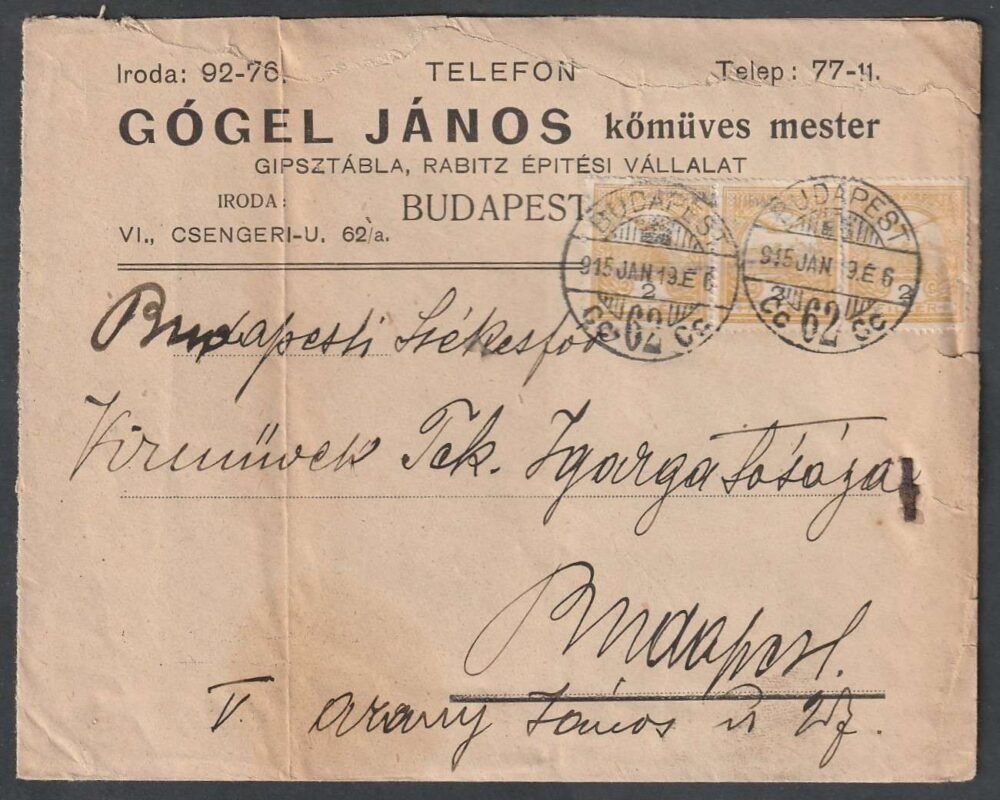 Iroda: 92-76. TELEFON Telep: 77-11.
GÓGEL JÁNOS kőmüves mester
GIPSZTÁBLA, RABITZ ÉPITÉSI VÁLLALAT
IRODA: BUDAPEST
VI., CSENGERI-U. 62/a.
BUDAPEST
915 JAN 19.E 6
2
62
BUDAPEST
915 JAN 19.E 6
2
62
Budapesti Székesfőv
Vizművek Tek. Igazgatósága
Budapest.
V. Arany János u 27.